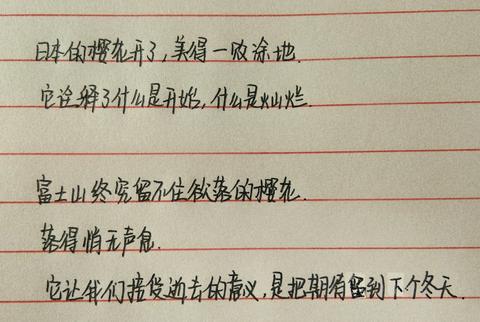 日本的樱花开了,美得一败涂地.
它诠释了什么是开始,什么是灿烂.
富士山终究留不住欲落的樱花.
落得悄无声息.
它让我们接受逝去的意义,是把期待留到下个冬天.